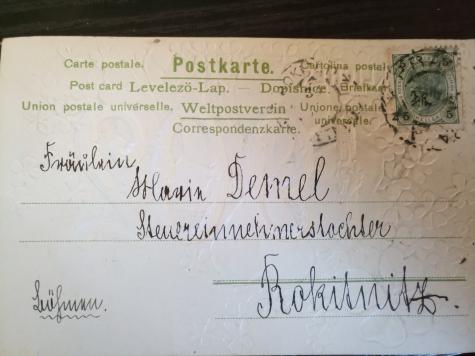 Carte postale. Postkarte. Cartolina postale
Post card Levelezö-Lap. — Dopisnice. Briefkaart
Union postale universelle. Weltpostverein Unione postale
universelle.
Correspondenzkarte.
Fräulein
Marie Demel
Steuereinnehmerstochter
Rokitnitz
Böhmen.